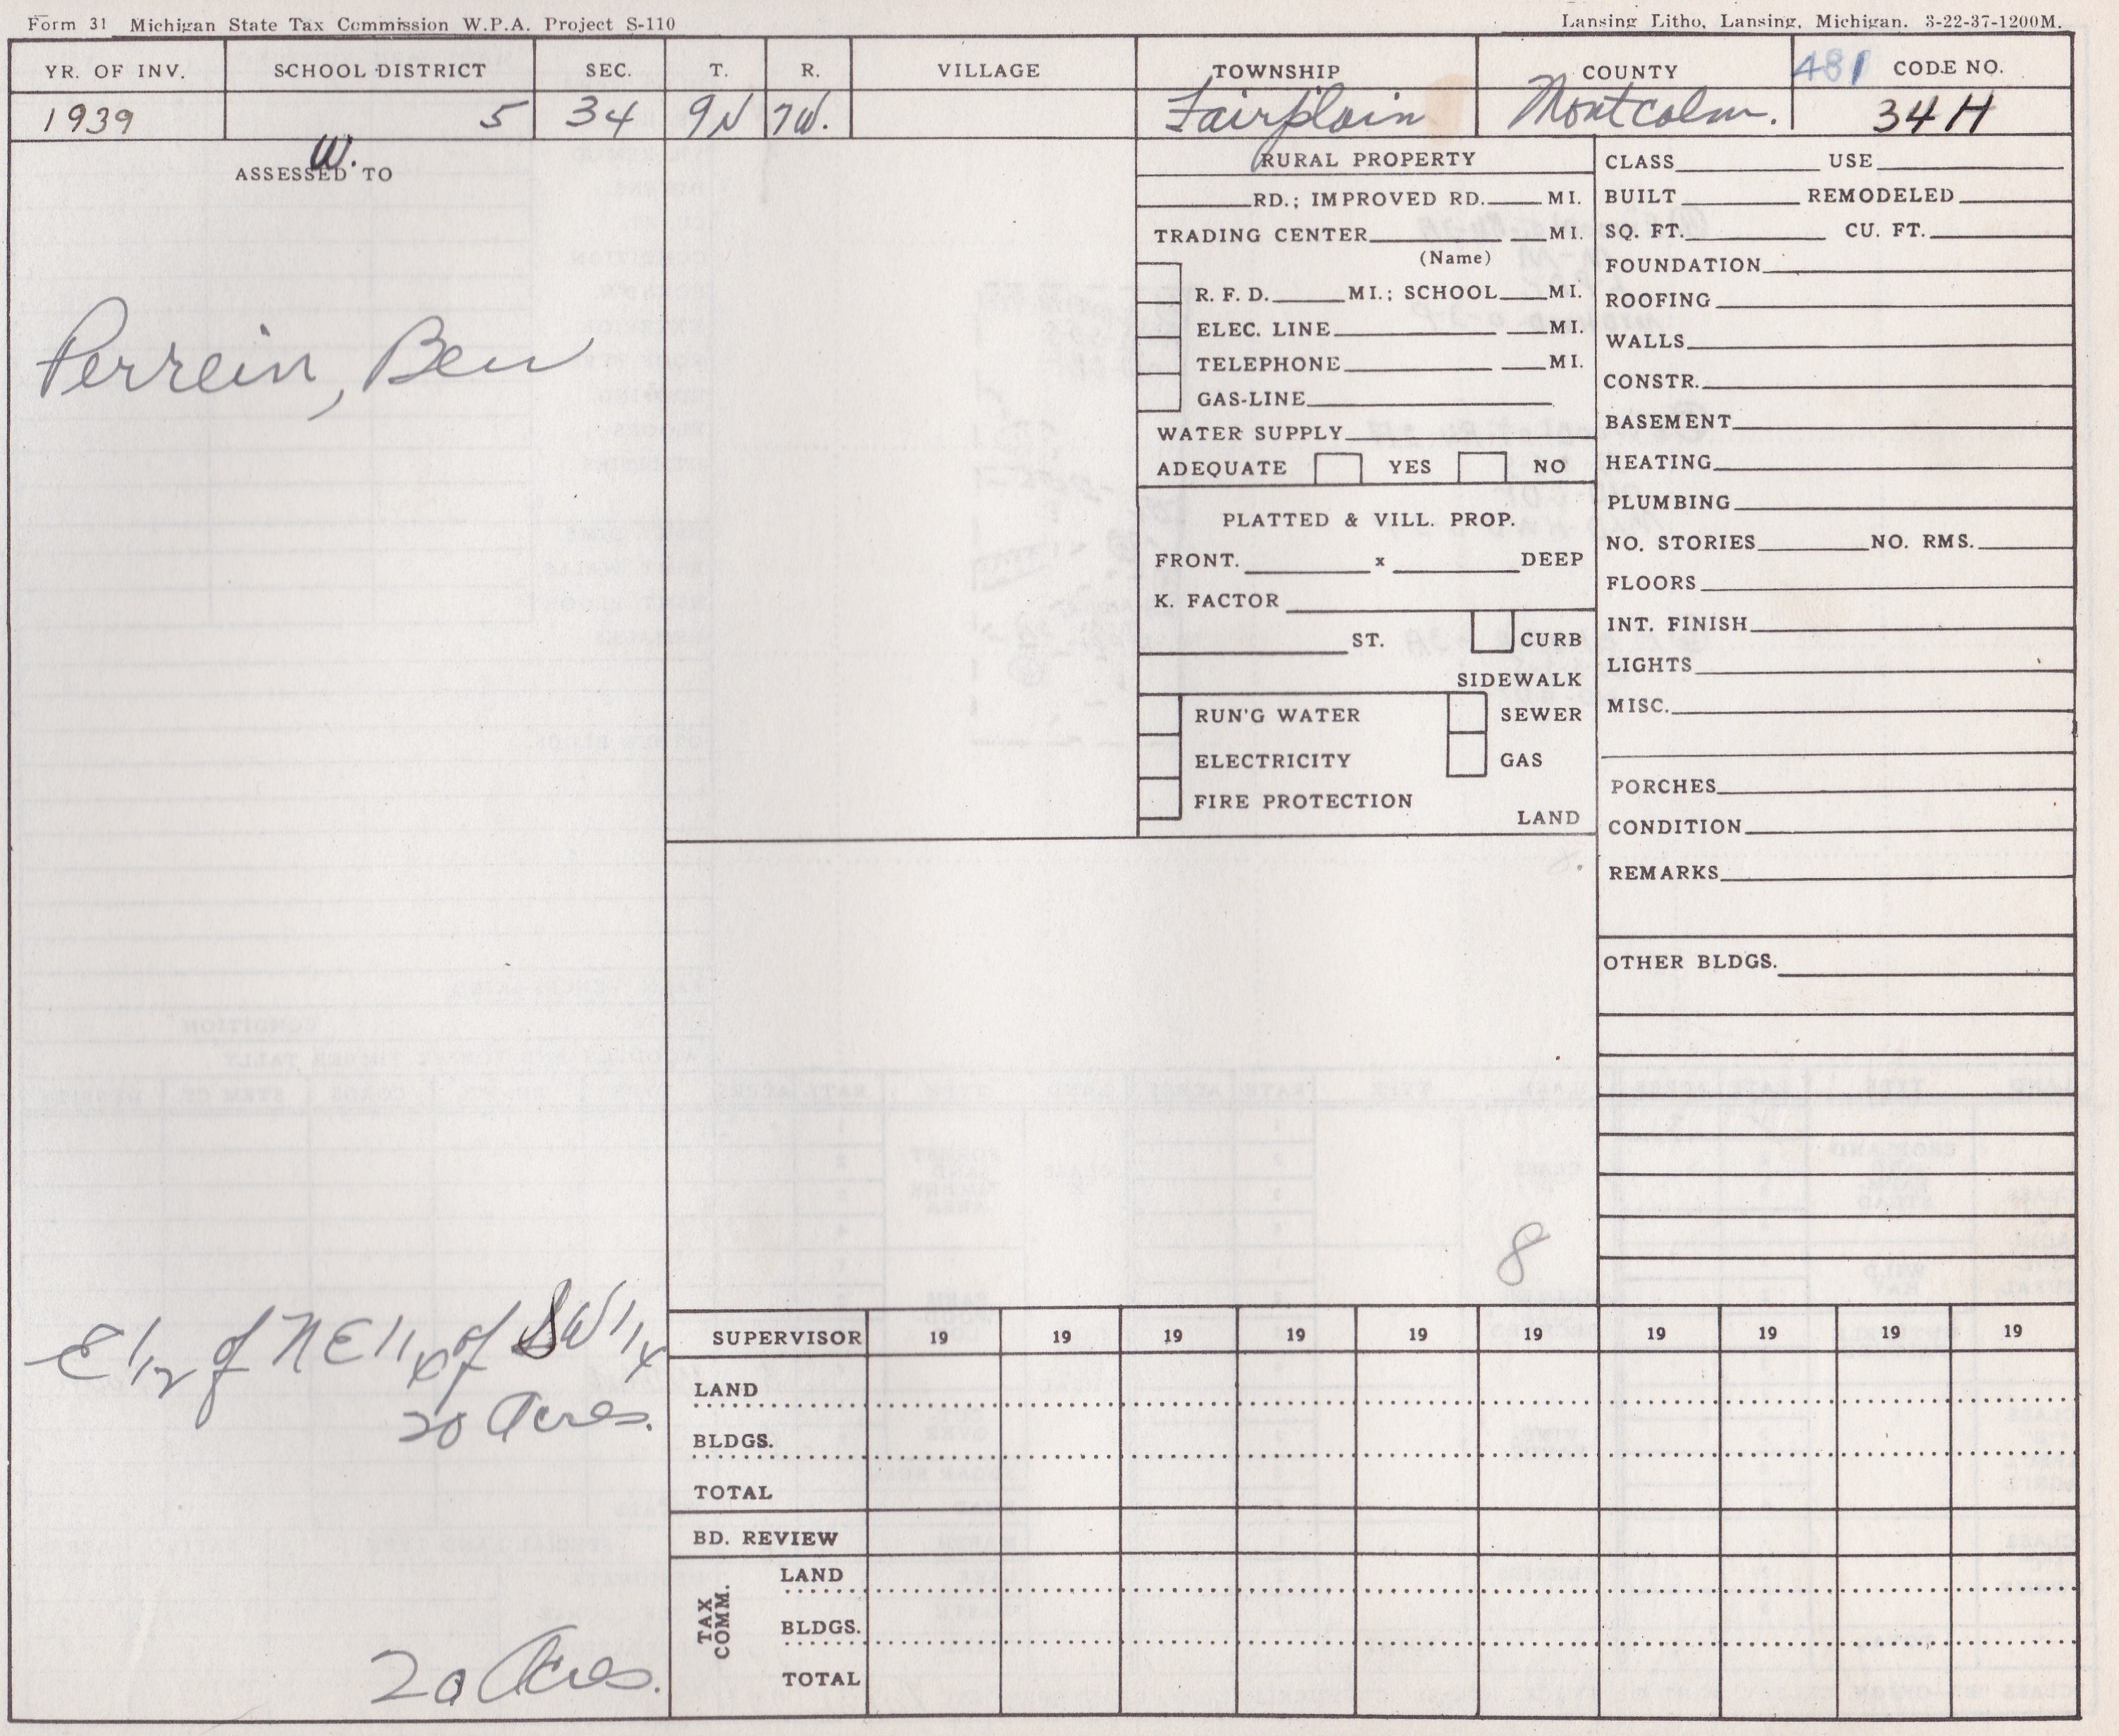 Form 31 Michigan State Tax Commission W.P.A. Project S-110
Lansing Litho, Lansing, Michigan. 3-22-37-1200M.
YR. OF INV. SCHOOL DISTRICT SEC. T. R. VILLAGE TOWNSHIP COUNTY 481 CODE NO.
1939 5 34 9N 7W. Fairplain Montcalm. 34H
W.
ASSESSED TO
Perrein, Ben
E 1/2 of NE 1/4 of SW 1/4
20 Acres.
20 Acres.
RURAL PROPERTY
RD.; IMPROVED RD. MI.
TRADING CENTER MI.
(Name)
R. F. D. MI.; SCHOOL MI.
ELEC. LINE MI.
TELEPHONE MI.
GAS-LINE
WATER SUPPLY
ADEQUATE YES NO
PLATTED & VILL. PROP.
FRONT. x DEEP
K. FACTOR
ST. CURB
SIDEWALK
RUN'G WATER SEWER
ELECTRICITY GAS
FIRE PROTECTION
LAND
CLASS USE
BUILT REMODELED
SQ. FT. CU. FT.
FOUNDATION
ROOFING
WALLS
CONSTR.
BASEMENT
HEATING
PLUMBING
NO. STORIES NO. RMS.
FLOORS
INT. FINISH
LIGHTS
MISC.
PORCHES
CONDITION
REMARKS
OTHER BLDGS.
8
SUPERVISOR 19 19 19 19 19 19 19 19 19 19
LAND
BLDGS.
TOTAL
BD. REVIEW
TAX COMM.
LAND
BLDGS.
TOTAL